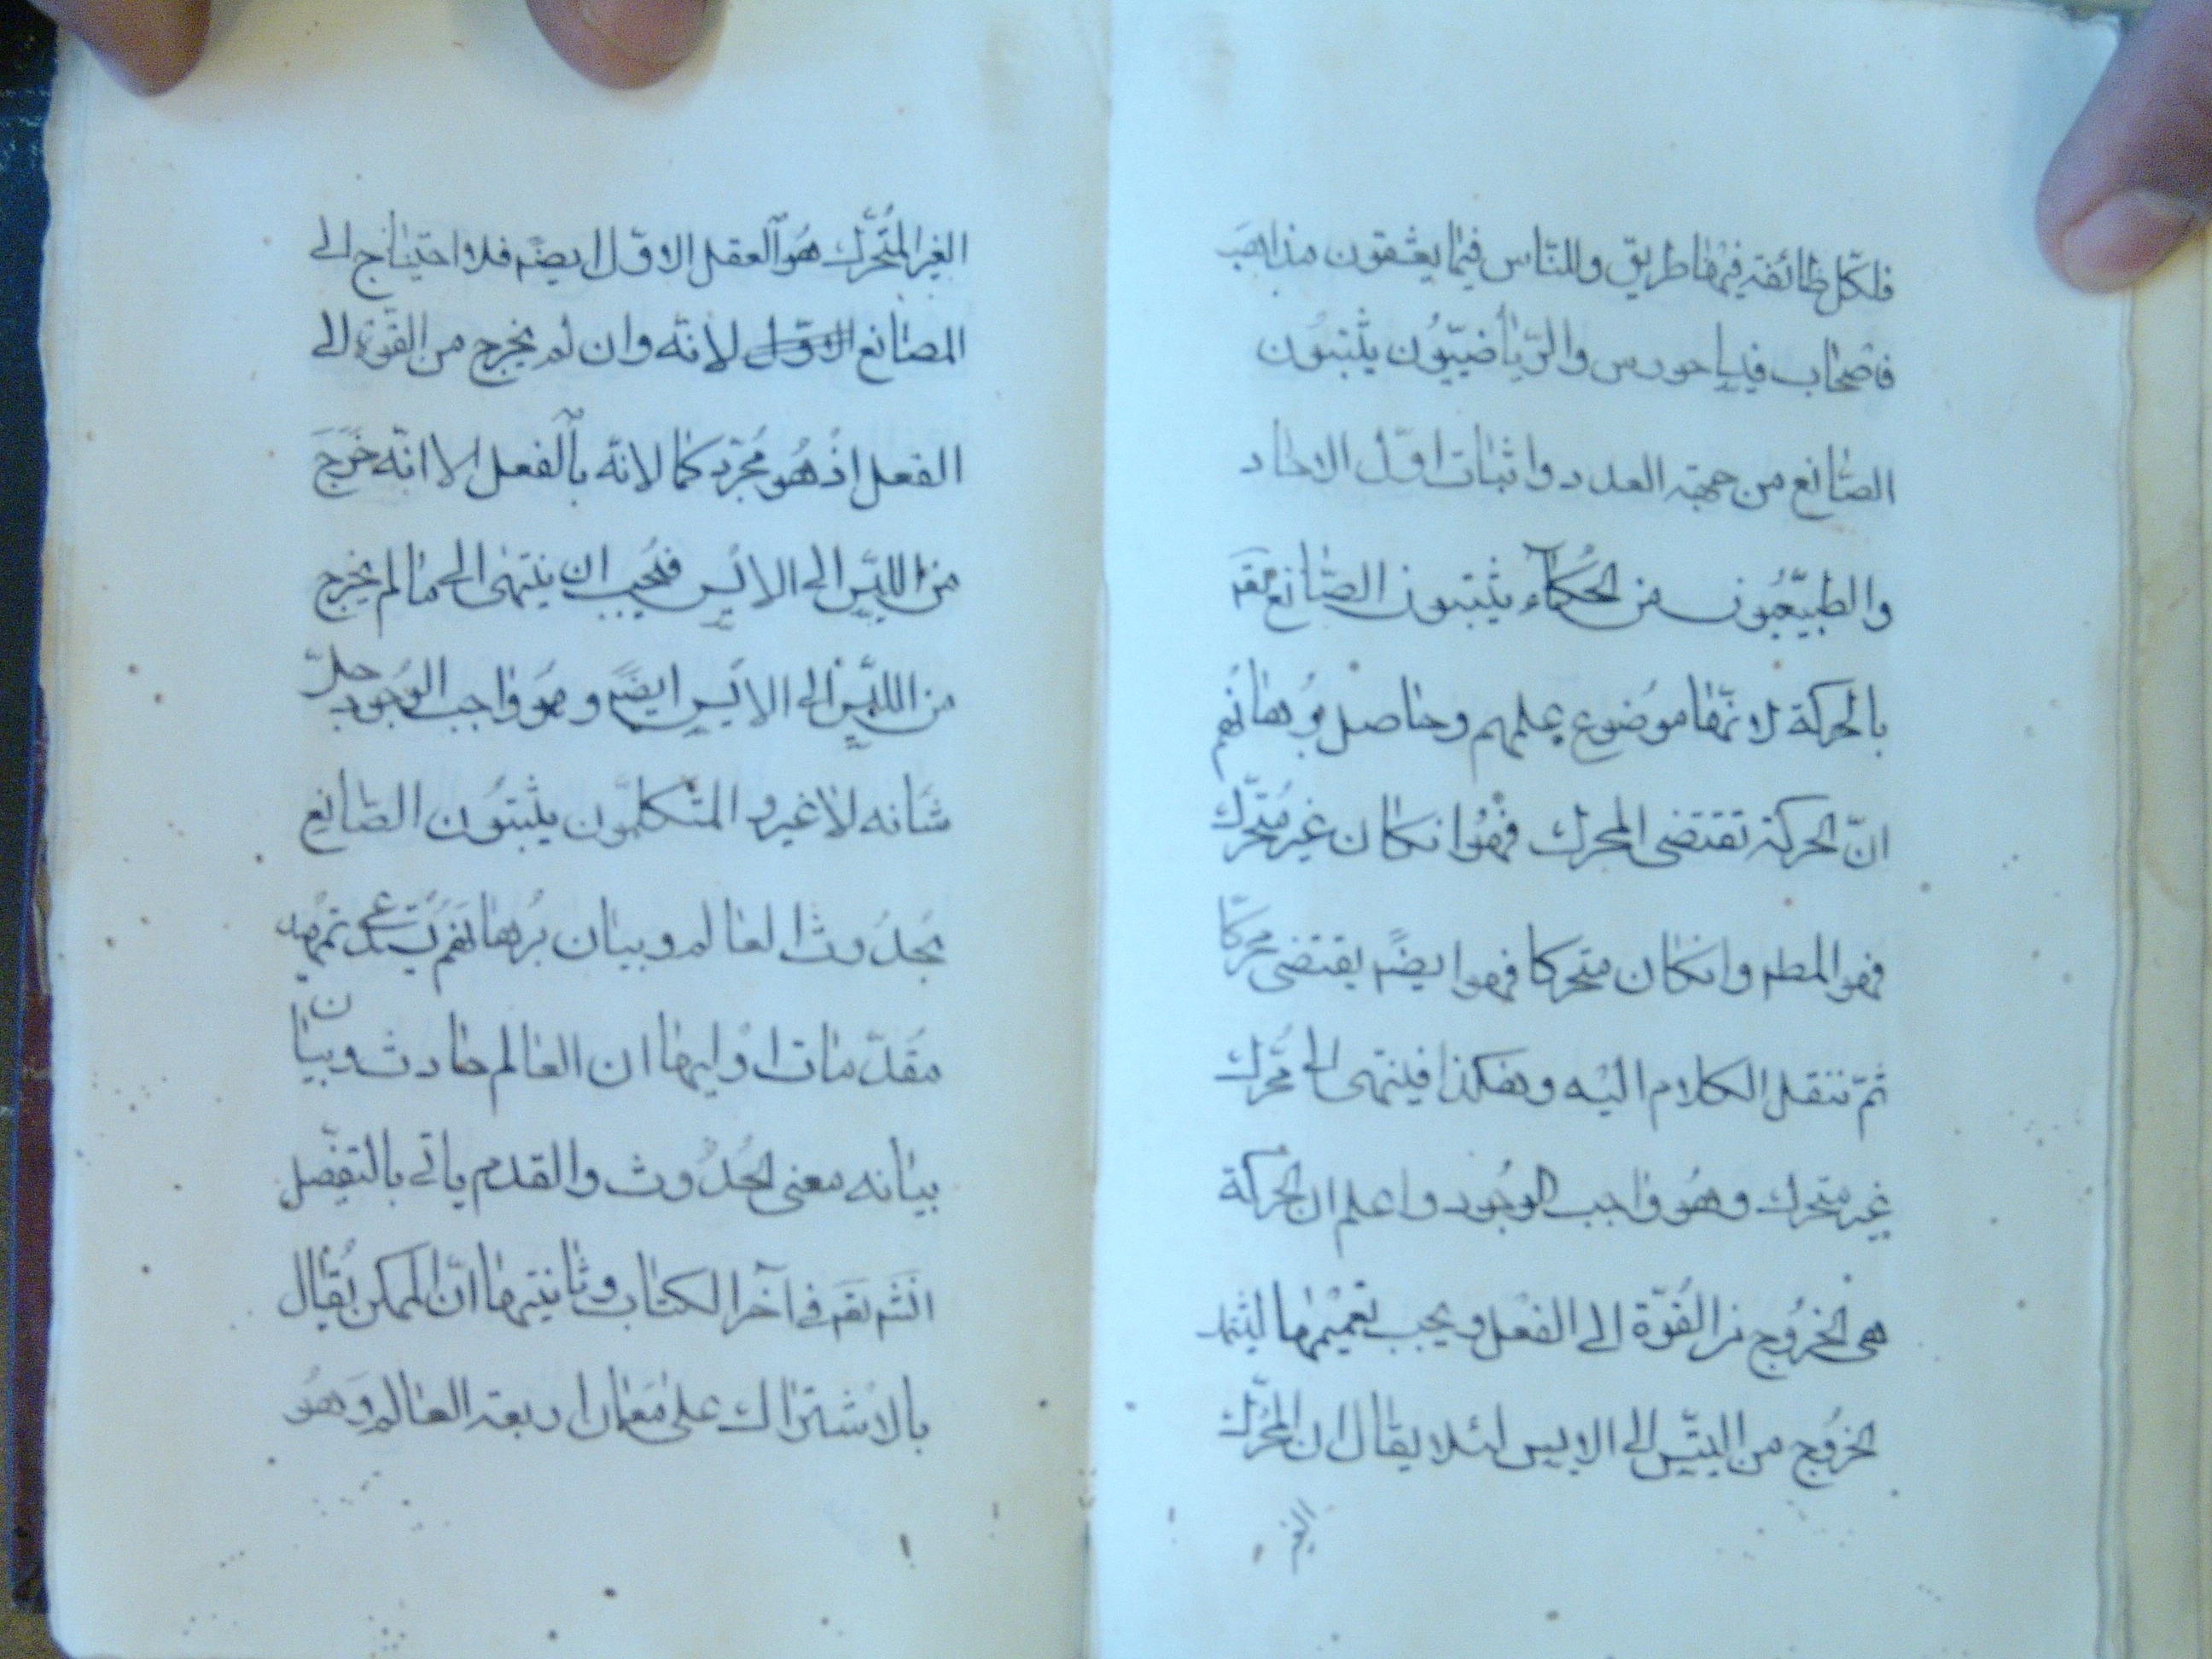 فلكلّ طائفة فيها طريق وللنّاس فيما يعشقون مذاهب
فاصحاب فيثاحورس والرّياضيّيون يثبتون
الصّانع من جهة العدد واثبات اوّل الاحاد
والطبيّعيون من الحكماء يثبتون الصّانع تقم
بالحركة لانّها موضوع علمهم وحاصل برهانهم
انّ الحركة تقتضى المحرك فهو انكان غير متحرّك
فهو المطم وانكان متحركا فهو ايضم يقتضى محركا
ثمّ ننقل الكلام اليه وهكذا فينتهى الى محرك
غير متحرك وهو واجب الوجود واعلم ان الحركة
هى الخروج من القوّة الى الفعل ويجب تعميمها ليشمل
الخروج من الليّس الى الايس لئلا يقال ان المحرّك
الغير
الغير المتحرّك هو العقل الاوّل ايضم فلا احتياج الى
الصانع الاوّل لانّه وان لم يخرج من القوّة الى
الفعل اذ هو مجرّد كمالاته بالفعل الا انّه خرج
من الليّس الى الايس فيجب ان ينتهى الى ما لم يخرج
من الليّس الى الايس ايضم وهو واجب الوجود جلّ
شانه لا غير والمتكلمّون يثبتون الصّانع
بحدوث العالم وبيان برهانهم يستدعى تمهيد
مقدّمات اوليها ان العالم حادث وبيان
بيانه معنى الحدوث والقدم ياتى بالتفصّل
انشم تقم فى آخر الكتاب وثانيتها انّ الممكن يقال
بالاشتراك على معان اربعة العالم وهو